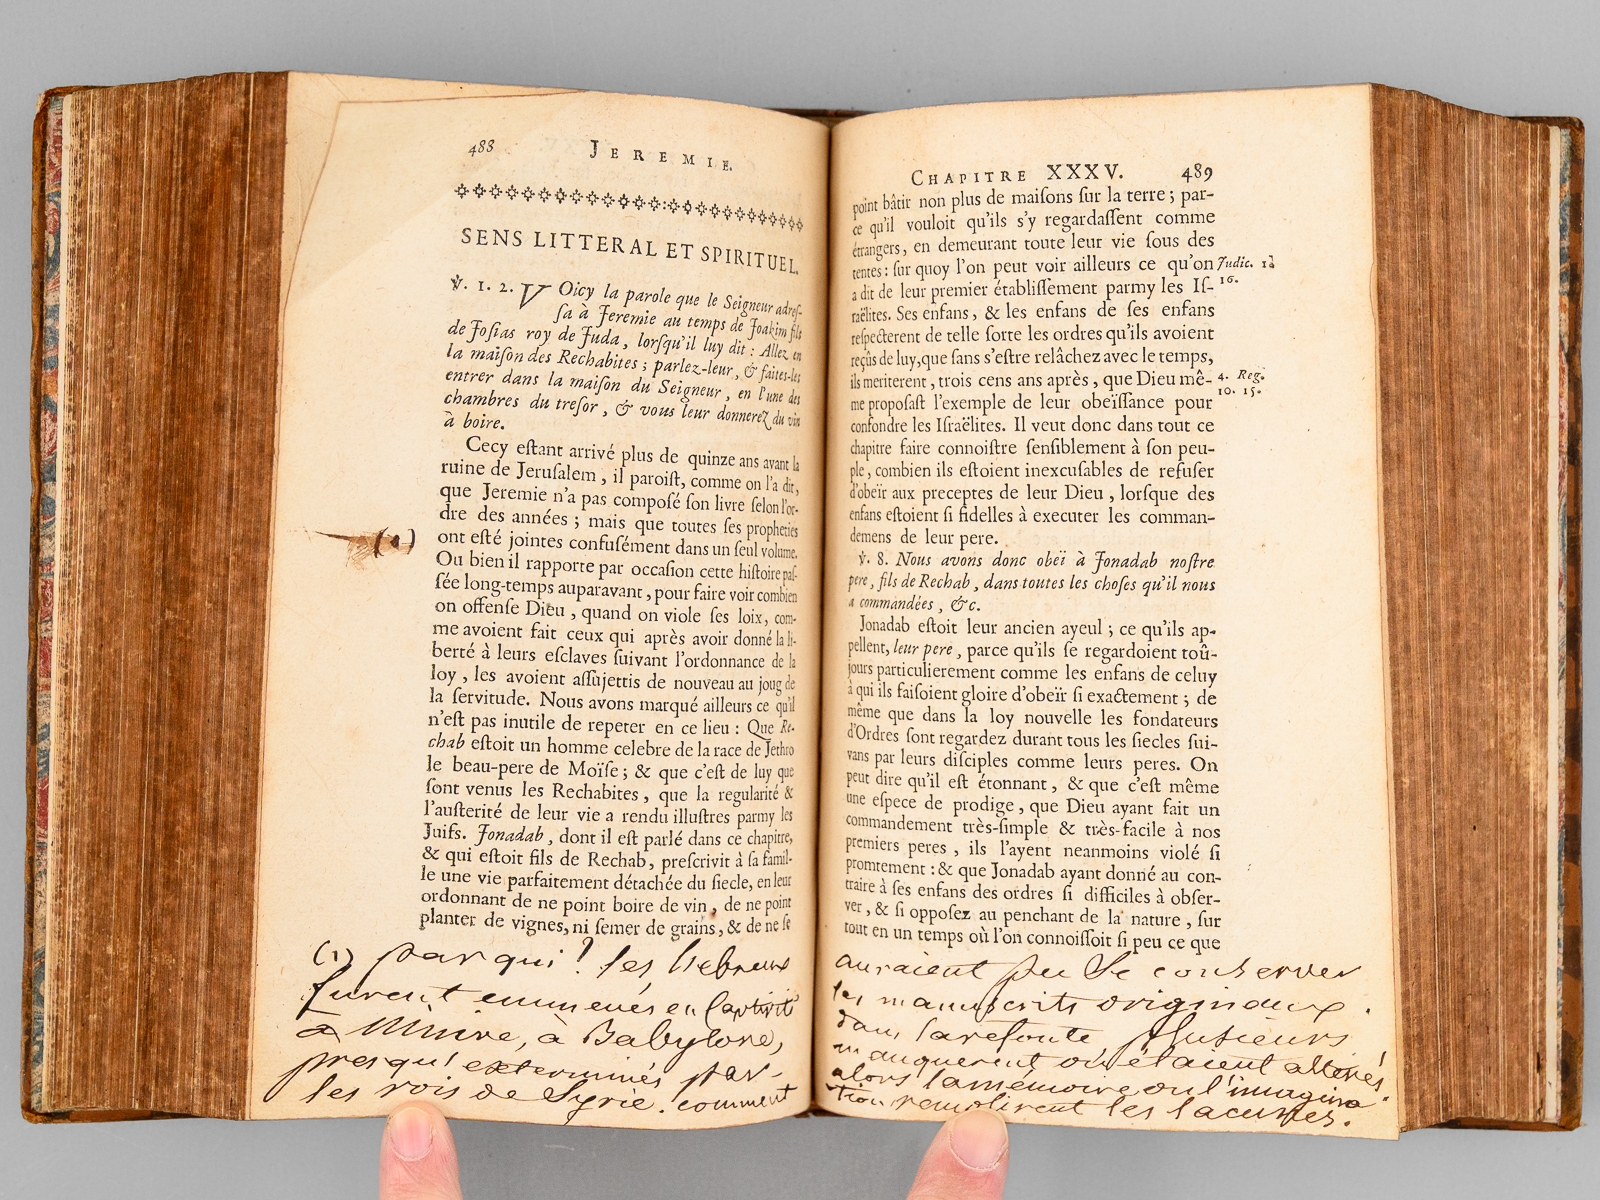 488 JEREMIE.
SENS LITTERAL ET SPIRITUEL.
℣. 1. 2. VOicy la parole que le Seigneur adreſ-
ſa à Jeremie au temps de Joakim fils
de Joſias roy de Juda, lorſqu'il luy dit : Allez en
la maiſon des Rechabites ; parlez-leur, & faites-les
entrer dans la maiſon du Seigneur, en l'une des
chambres du treſor, & vous leur donnerez du vin
à boire.
Cecy eſtant arrivé plus de quinze ans avant la
ruine de Jeruſalem, il paroiſt, comme on l'a dit,
que Jeremie n'a pas compoſé ſon livre ſelon l'or-
dre des années ; mais que toutes ſes propheties
ont eſté jointes confuſément dans un ſeul volume.
Ou bien il rapporte par occaſion cette hiſtoire paſ-
ſée long-temps auparavant, pour faire voir combien
on offenſe Dieu, quand on viole ſes loix, com-
me avoient fait ceux qui après avoir donné la li-
berté à leurs eſclaves ſuivant l'ordonnance de la
loy, les avoient aſſujettis de nouveau au joug de
la ſervitude. Nous avons marqué ailleurs ce qu'il
n'eſt pas inutile de repeter en ce lieu : Que Re-
chab eſtoit un homme celebre de la race de Jethro
le beau-pere de Moïſe ; & que c'eſt de luy que
ſont venus les Rechabites, que la regularité &
l'auſterité de leur vie a rendu illuſtres parmy les
Juifs. Jonadab, dont il eſt parlé dans ce chapitre,
& qui eſtoit fils de Rechab, preſcrivit à ſa famil-
le une vie parfaitement détachée du ſiecle, en leur
ordonnant de ne point boire de vin, de ne point
planter de vignes, ni ſemer de grains, & de ne ſe
(1) par qui? les hebreux
furent emmenés en captivité
a Ninive, à Babylone,
presqu'exterminés par
les rois de Syrie. comment
CHAPITRE XXXV. 489
point bâtir non plus de maiſons ſur la terre ; par-
ce qu'il vouloit qu'ils s'y regardaſſent comme
étrangers, en demeurant toute leur vie ſous des
tentes : ſur quoy l'on peut voir ailleurs ce qu'on Judic. 1.
a dit de leur premier établiſſement parmy les Iſ- 16.
raëlites. Ses enfans, & les enfans de ſes enfans
reſpecterent de telle ſorte les ordres qu'ils avoient
reçûs de luy, que ſans s'eſtre relâchez avec le temps,
ils meriterent, trois cens ans après, que Dieu mê- 4. Reg.
me propoſaſt l'exemple de leur obeïſſance pour 10. 15.
confondre les Iſraëlites. Il veut donc dans tout ce
chapitre faire connoiſtre ſenſiblement à ſon peu-
ple, combien ils eſtoient inexcuſables de refuſer
d'obeïr aux preceptes de leur Dieu, lorſque des
enfans eſtoient ſi fidelles à executer les comman-
demens de leur pere.
℣. 8. Nous avons donc obeï à Jonadab noſtre
pere, fils de Rechab, dans toutes les choſes qu'il nous
a commandées, &c.
Jonadab eſtoit leur ancien ayeul ; ce qu'ils ap-
pellent, leur pere, parce qu'ils ſe regardoient toû-
jours particulierement comme les enfans de celuy
à qui ils faiſoient gloire d'obeïr ſi exactement ; de
même que dans la loy nouvelle les fondateurs
d'Ordres ſont regardez durant tous les ſiecles ſui-
vans par leurs diſciples comme leurs peres. On
peut dire qu'il eſt étonnant, & que c'eſt même
une eſpece de prodige, que Dieu ayant fait un
commandement très-ſimple & très-facile à nos
premiers peres, ils l'ayent neanmoins violé ſi
promtement : & que Jonadab ayant donné au con-
traire à ſes enfans des ordres ſi difficiles à obſer-
ver, & ſi oppoſez au penchant de la nature, ſur
tout en un temps où l'on connoiſſoit ſi peu ce que
auraient pu se conserver
les manuscrits originaux.
dans la refonte plusieurs
manquerent ou étaient altérés
alors la mémoire ou l'imagina-
tion remplirent les lacunes.